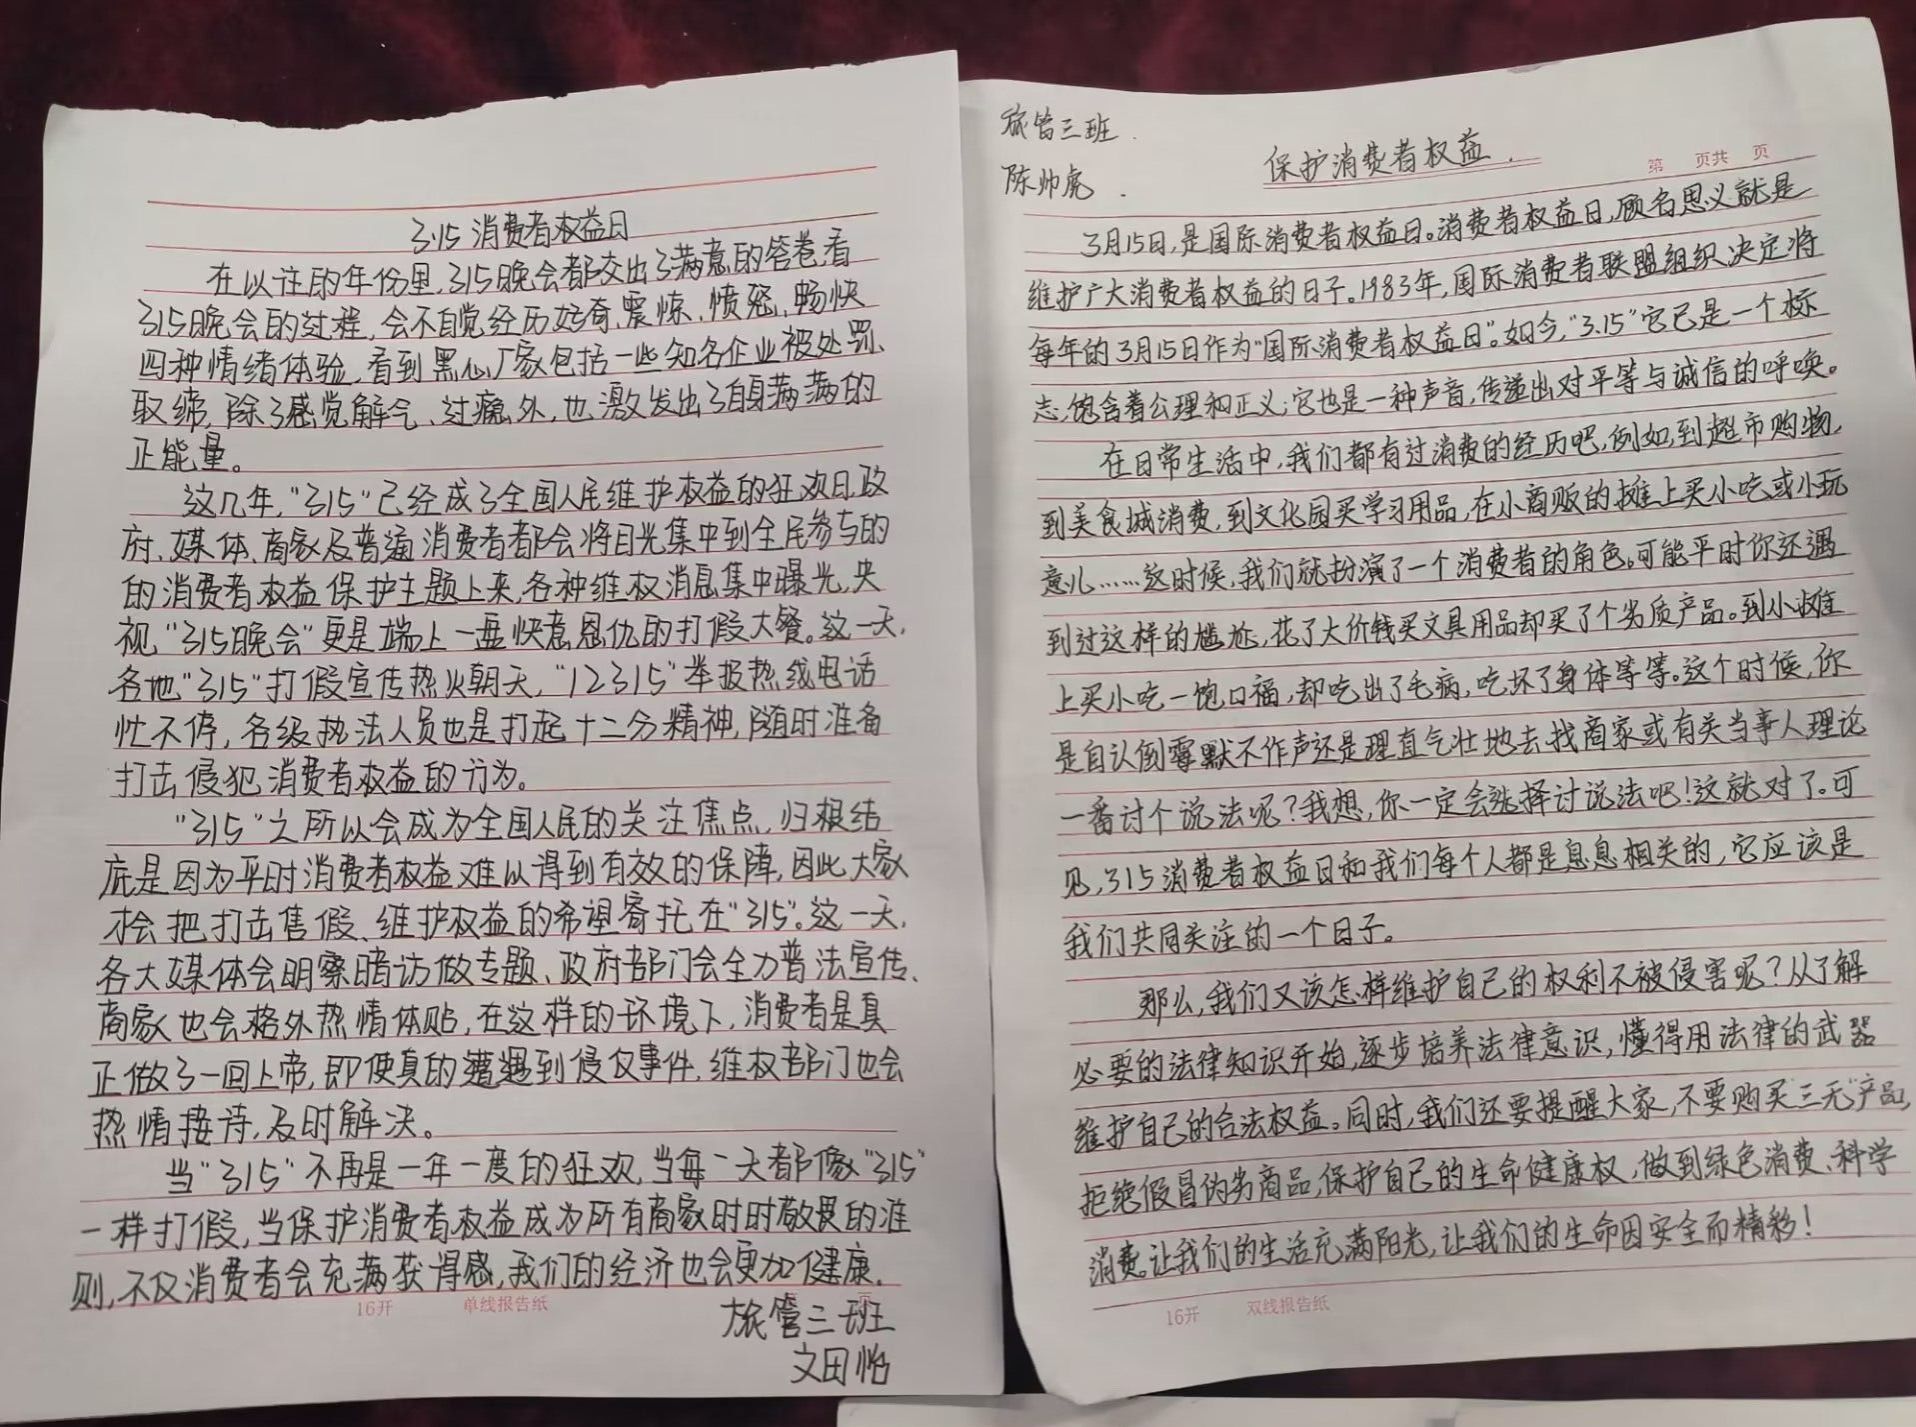 3.15 消费者权益日
在以往的年份里,315晚会都交出了满意的答卷,看
315晚会的过程,会不自觉经历好奇、震惊、愤怒、畅快
四种情绪体验,看到黑心厂家包括一些知名企业被处罚、
取缔,除了感觉解气、过瘾外,也激发出了自身满满的
正能量。
这几年,"315"已经成了全国人民维护权益的狂欢日,政
府、媒体、商家及普通消费者都会将目光集中到全民参与的
的消费者权益保护主题上来,各种维权消息集中曝光,央
视"315晚会"更是端上一盘快意恩仇的打假大餐。这一天,
各地"315"打假宣传热火朝天,"12315"举报热线电话
忙不停,各级执法人员也是打起十二分精神,随时准备
打击侵犯消费者权益的行为。
"315"之所以会成为全国人民的关注焦点,归根结
底是因为平时消费者权益难以得到有效的保障,因此大家
才会把打击售假、维护权益的希望寄托在"315"。这一天,
各大媒体会明察暗访做专题、政府部门会全力普法宣传、
商家也会格外热情体贴,在这样的环境下,消费者是真
正做了一回上帝,即使真的遭遇到侵权事件,维权部门也会
热情接待,及时解决。
当"315"不再是一年一度的狂欢,当每一天都像"315"
一样打假,当保护消费者权益成为所有商家时时敬畏的准
则,不仅消费者会充满获得感,我们的经济也会更加健康.
16开 单线报告纸
旅管三班
文田怡
旅管三班.
陈帅虎.
保护消费者权益.
第 页共 页
3月15日,是国际消费者权益日。消费者权益日,顾名思义就是
维护广大消费者权益的日子。1983年,国际消费者联盟组织决定将
每年的3月15日作为"国际消费者权益日"。如今,"3.15"它已是一个标
志,饱含着公理和正义;它也是一种声音,传递出对平等与诚信的呼唤。
在日常生活中,我们都有过消费的经历吧,例如,到超市购物,
到美食城消费,到文化园买学习用品,在小商贩的摊上买小吃或小玩
意儿……这时候,我们就扮演了一个消费者的角色。可能平时你还遇
到过这样的尴尬,花了大价钱买文具用品却买了个劣质产品。到小摊
上买小吃一饱口福,却吃出了毛病,吃坏了身体等等。这个时候,你
是自认倒霉默不作声还是理直气壮地去找商家或有关当事人理论
一番讨个说法呢?我想,你一定会选择讨说法吧!这就对了。可
见,315消费者权益日和我们每个人都是息息相关的,它应该是
我们共同关注的一个日子。
那么,我们又该怎样维护自己的权利不被侵害呢?从了解
必要的法律知识开始,逐步培养法律意识,懂得用法律的武器
维护自己的合法权益。同时,我们还要提醒大家,不要购买"三无"产品,
拒绝假冒伪劣商品,保护自己的生命健康权,做到绿色消费、科学
消费。让我们的生活充满阳光,让我们的生命因安全而精彩!
16开 双线报告纸